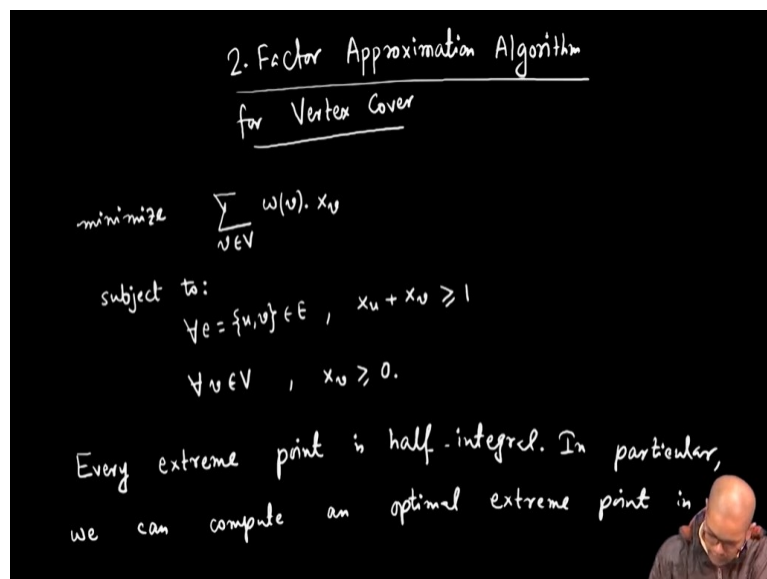 2-Factor Approximation Algorithm
for Vertex Cover
minimize ∑_{v∈V} w(v). x_v
subject to:
∀e = {u,v} ∈ E , x_u + x_v ≥ 1
∀ v ∈ V , x_v ≥ 0.
Every extreme point is half-integral. In particular,
we can compute an optimal extreme point in